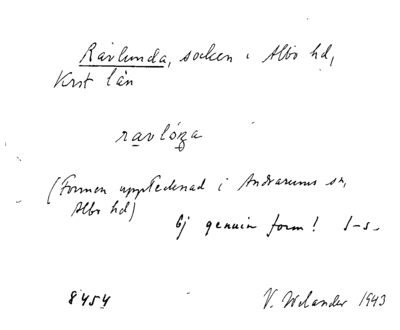 Ravlunda, socken i Albo hd,
Krst län
ravlóza
(Formen upptecknad i Andrarums sn,
Albo hd)
Ej genuin form! S-s.
8454
V. Welander 1943